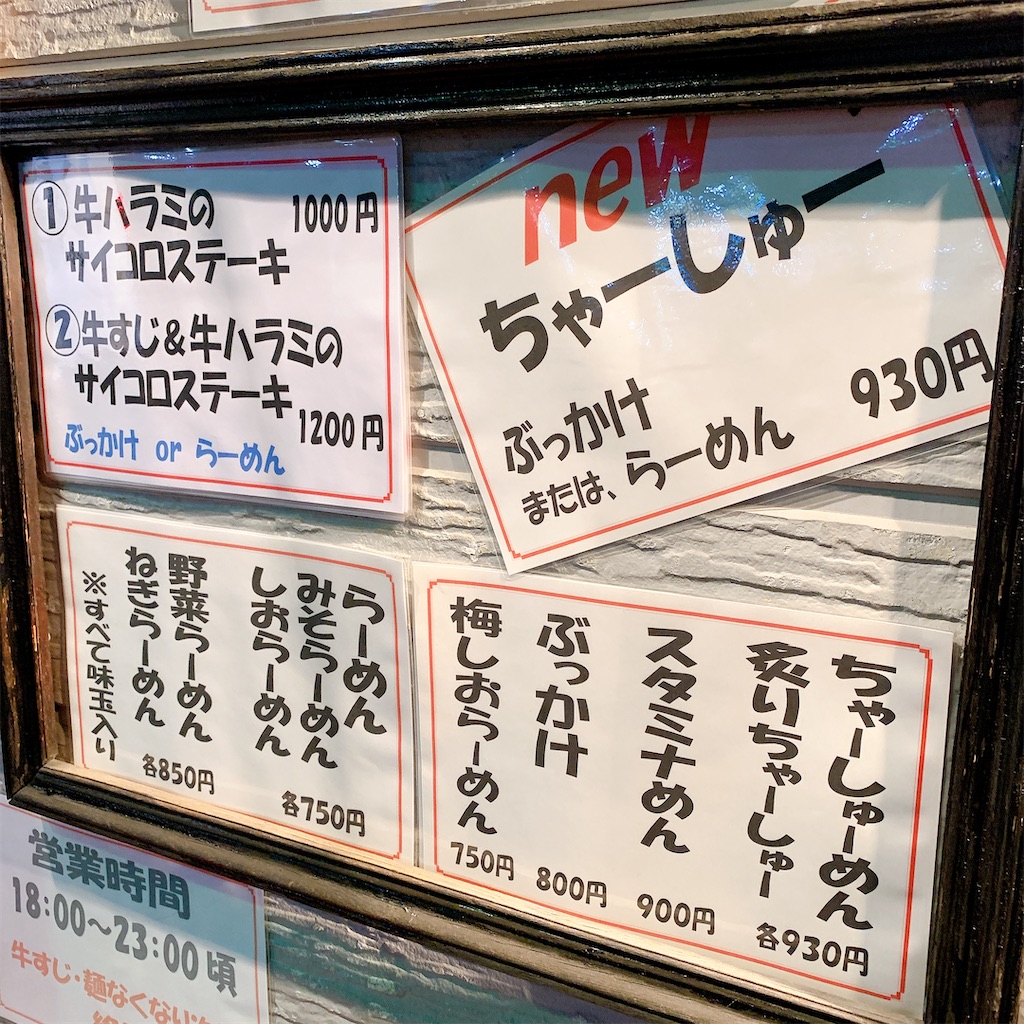 ①牛ハラミの 1000円
サイコロステーキ
②牛すじ&牛ハラミの
サイコロステーキ
1200円
ぶっかけ or らーめん
new
ちゃーしゅー
ぶっかけ
または、らーめん 930円
らーめん
みそらーめん
しおらーめん
各750円
野菜らーめん
ねぎらーめん
各850円
※すべて味玉入り
ちゃーしゅーめん
炙りちゃーしゅー
各930円
スタミナめん
900円
ぶっかけ
800円
梅しおらーめん
750円
営業時間
18:00～23:00頃
牛すじ・麺なくない次